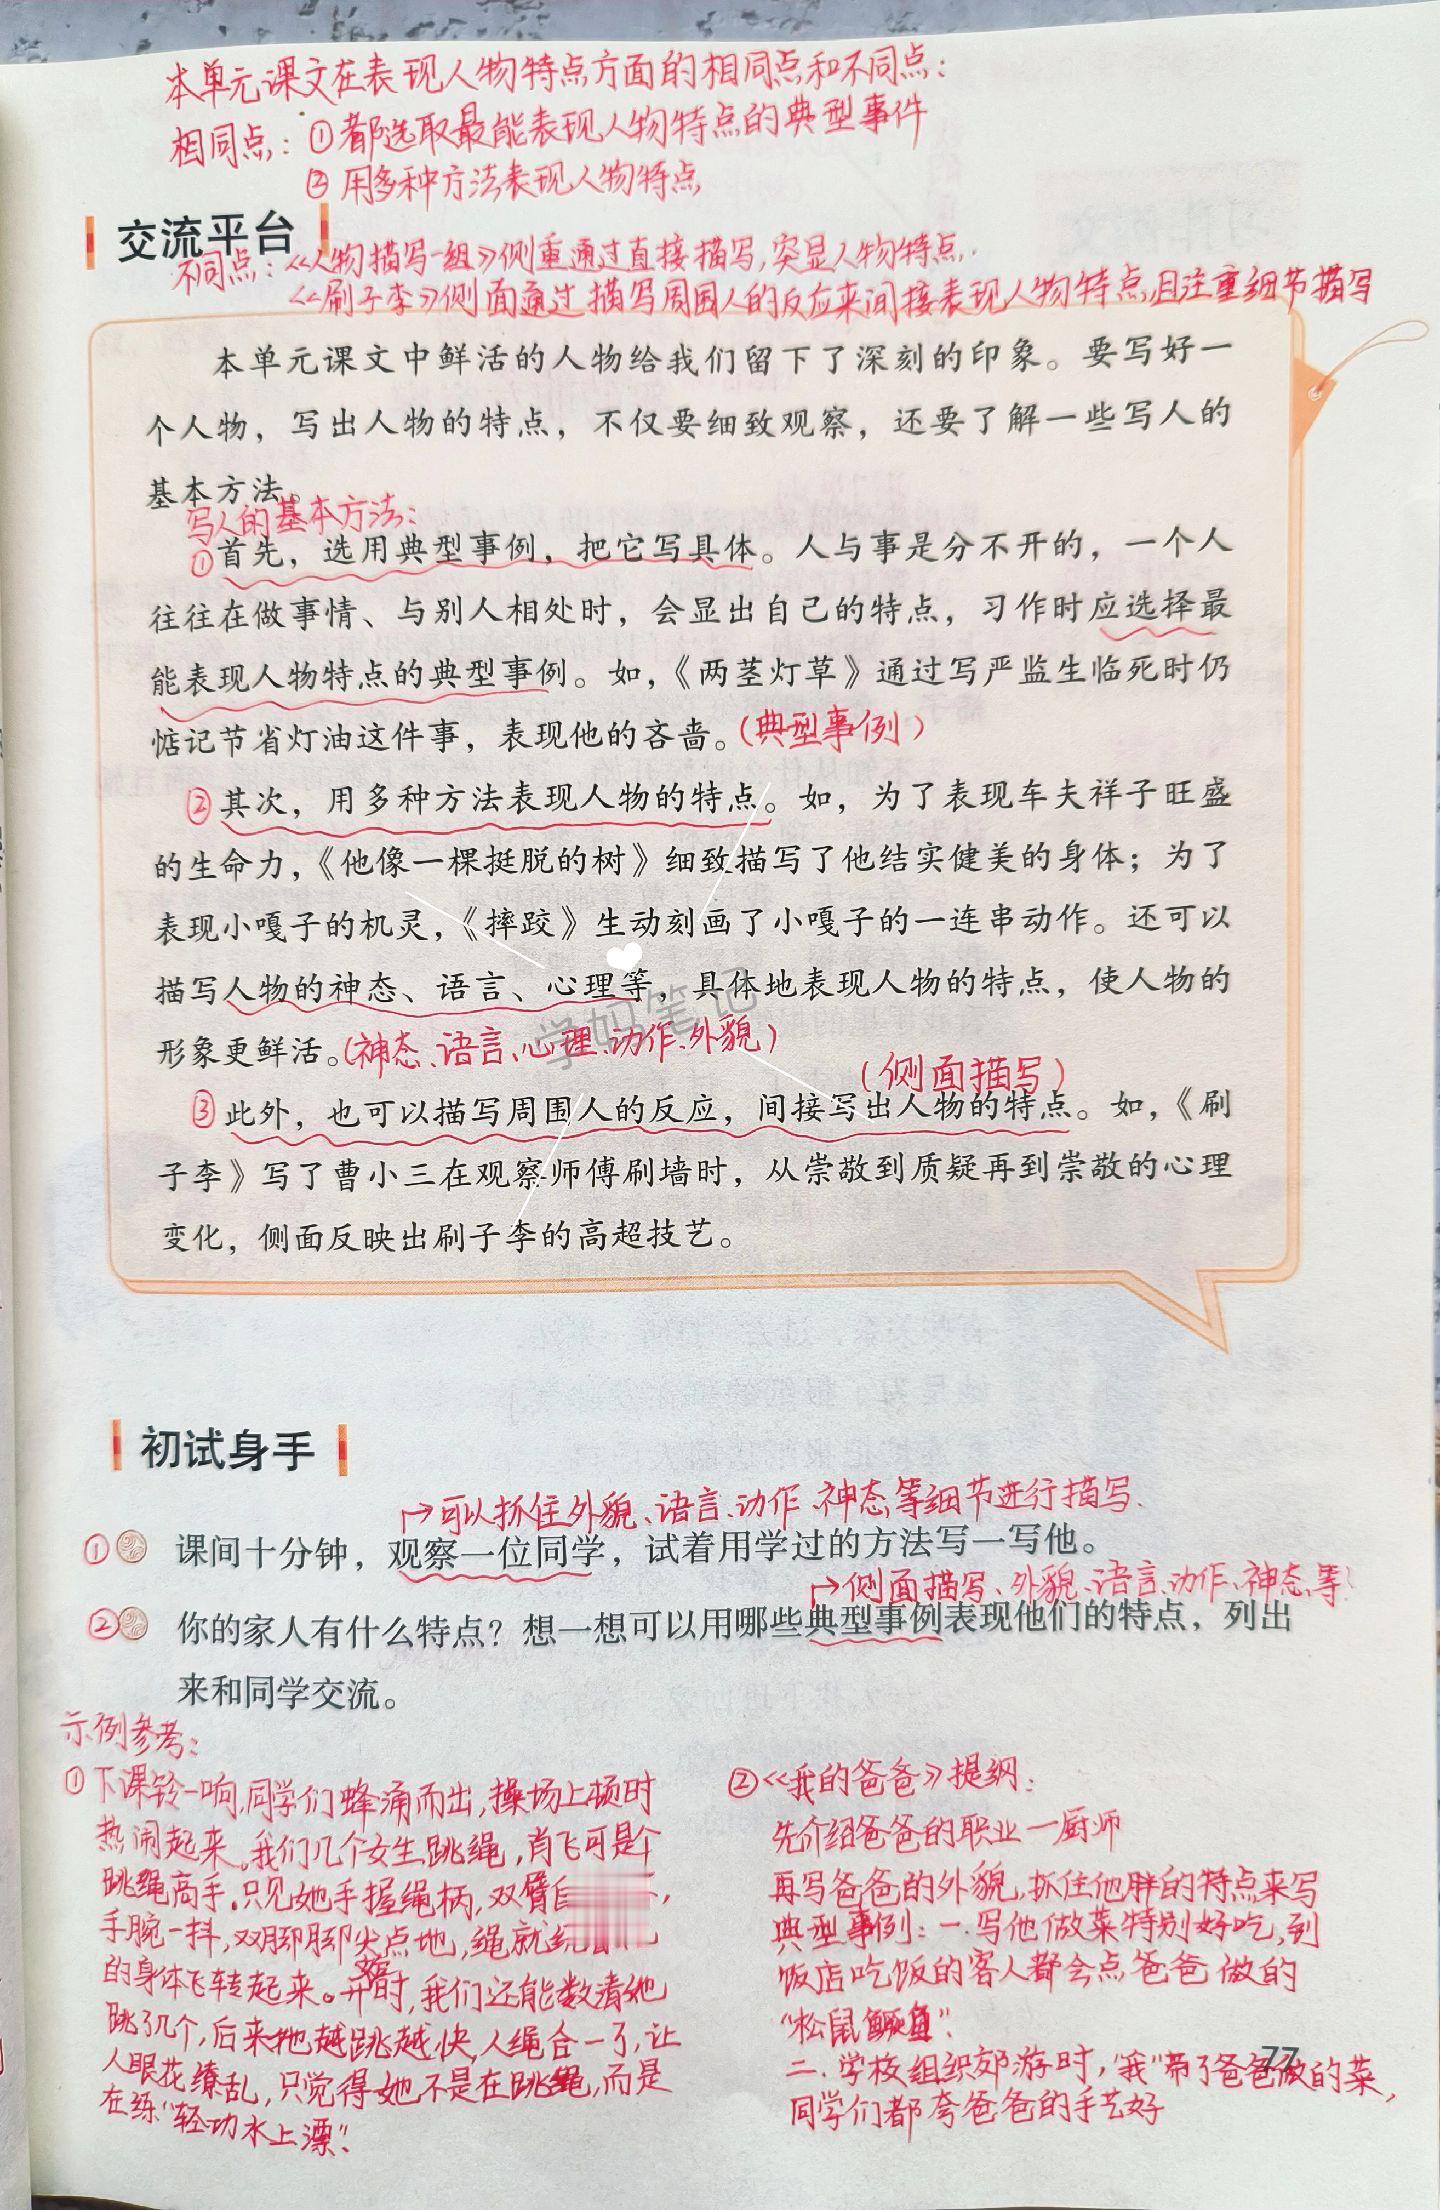 本单元课文在表现人物特点方面的相同点和不同点：
相同点：①都选取最能表现人物特点的典型事件
②用多种方法表现人物特点
交流平台
不同点：《人物描写一组》侧重通过直接描写，突显人物特点.
《刷子李》侧面通过描写周围人的反应来间接表现人物特点，且注重细节描写
本单元课文中鲜活的人物给我们留下了深刻的印象。要写好一
个人物，写出人物的特点，不仅要细致观察，还要了解一些写人的
基本方法。
写人的基本方法：
①首先，选用典型事例，把它写具体。人与事是分不开的，一个人
往往在做事情、与别人相处时，会显出自己的特点，习作时应选择最
能表现人物特点的典型事例。如，《两茎灯草》通过写严监生临死时仍
惦记节省灯油这件事，表现他的吝啬。（典型事例）
②其次，用多种方法表现人物的特点。如，为了表现车夫祥子旺盛
的生命力，《他像一棵挺脱的树》细致描写了他结实健美的身体；为了
表现小嘎子的机灵，《摔跤》生动刻画了小嘎子的一连串动作。还可以
描写人物的神态、语言、心理等，具体地表现人物的特点，使人物的
学妈笔记
形象更鲜活。（神态、语言、心理、动作、外貌）
（侧面描写）
③此外，也可以描写周围人的反应，间接写出人物的特点。如，《刷
子李》写了曹小三在观察师傅刷墙时，从崇敬到质疑再到崇敬的心理
变化，侧面反映出刷子李的高超技艺。
初试身手
可以抓住外貌、语言、动作、神态等细节进行描写.
① 课间十分钟，观察一位同学，试着用学过的方法写一写他。
侧面描写、外貌、语言、动作、神态等
② 你的家人有什么特点？想一想可以用哪些典型事例表现他们的特点，列出
来和同学交流。
示例参考：
①下课铃一响，同学们蜂涌而出，操场上顿时
热闹起来。我们几个女生跳绳，肖飞可是个
跳绳高手。只见她手握绳柄，双臂自
手腕一抖，双脚脚尖点地，绳就绕
的身体飞转起来。开始时，我们还能数清她
跳了几个，后来她越跳越快，人绳合一了，让
人眼花缭乱，只觉得她不是在跳绳，而是
在练“轻功水上漂”.
②《我的爸爸》提纲：
先介绍爸爸的职业—厨师
再写爸爸的外貌，抓住他胖的特点来写
典型事例：一.写他做菜特别好吃，到
饭店吃饭的客人都会点爸爸做的
“松鼠鳜鱼”.
二.学校组织郊游时，“我”带了爸爸做的菜，
同学们都夸爸爸的手艺好
77